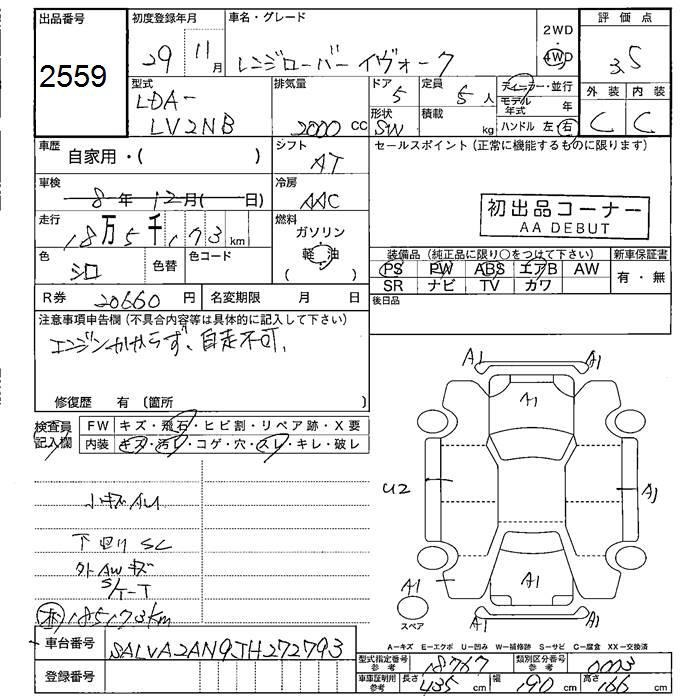 出品番号
2559
初度登録年月
29 11月
車名・グレード
レンジローバー イヴォーク
2WD
4WD
評価点
3.5
外装 内装
C C
型式
LDA-
LV2NB
排気量
2000 CC
ドア
5
形状
SW
定員
5 人
積載
kg
ディーラー・並行
モデル年式 年
ハンドル 左 右
車歴
自家用・( )
シフト
AT
セールスポイント (正常に機能するものに限ります)
車検
8年 12月( 日)
冷房
AAC
初出品コーナー
AA DEBUT
走行
18万5千173km
燃料
ガソリン
(軽油)
色
シロ
色替
色コード
装備品 (純正品に限り○をつけて下さい)
新車保証書
PS PW ABS エアB AW
SR ナビ TV カワ
有・無
R券 20660 円
名変期限 月 日
後日品
注意事項申告欄 (不具合内容等は具体的に記入して下さい)
エンジンかからず、自走不可、
修復歴 有 (箇所 )
検査員記入欄
FW キズ・飛石・ヒビ割・リペア跡・X要
内装 キズ・汚レ・コゲ・穴・スレ・キレ・破レ
小キズAU
下回りSC
外AWキズ
S/T-T
185173km
A1 A1
A1
U2
A1
A1
A1
スペア
A1
A1
A-キズ E-エクボ U-凹み W-補修跡 S-サビ C-腐食 XX-交換済
車台番号 SALVA2AN9JH272793
登録番号
型式指定番号参考 18767
類別区分番号参考 0003
車庫証明用参考 長さ 435 cm 幅 190 cm 高さ 166 cm